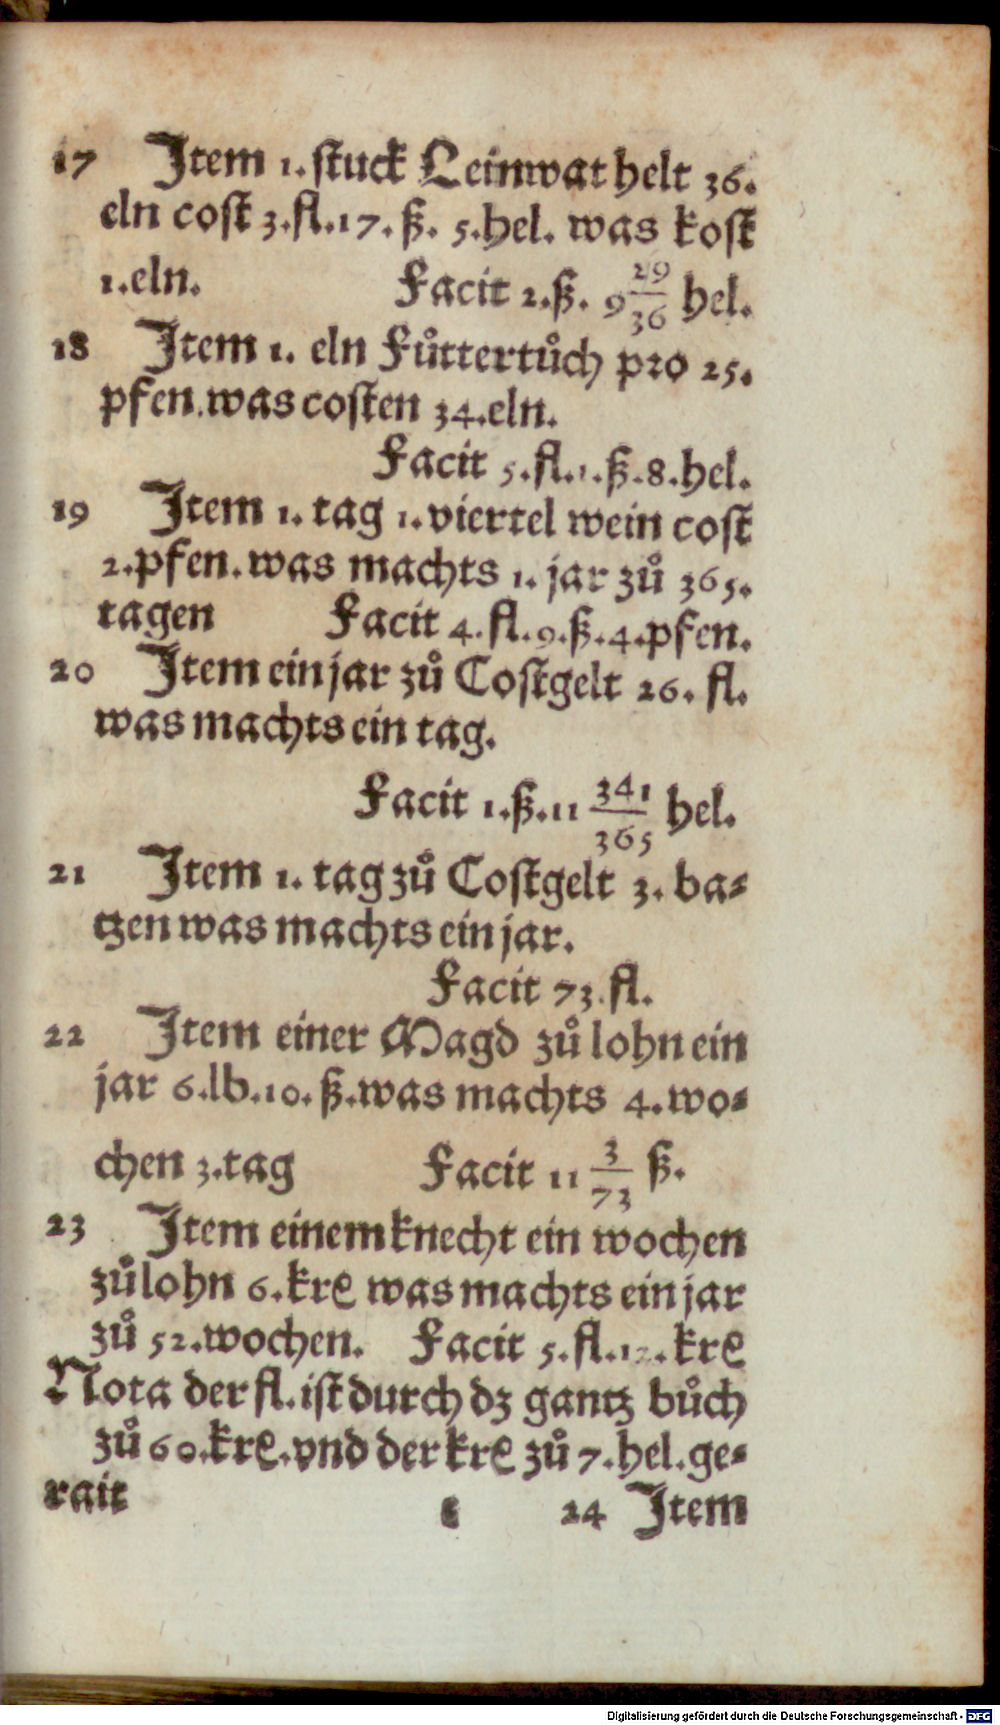 17 Item 1. stuck Leinwat helt 36.
eln cost 3. fl. 17. ß. 5. hel. was kost
1. eln. Facit 2. ß. 9 29/36 hel.
18 Item 1. eln Fůttertůch pro 25.
pfen. was costen 34. eln.
Facit 5. fl. 1. ß. 8. hel.
19 Item 1. tag 1. viertel wein cost
2. pfen. was machts 1. jar zů 365.
tagen Facit 4. fl. 9. ß. 4. pfen.
20 Item ein jar zů Costgelt 26. fl.
was machts ein tag.
Facit 1. ß. 11 341/365 hel.
21 Item 1. tag zů Costgelt 3. ba⸗
tzen was machts ein jar.
Facit 73. fl.
22 Item einer Magd zů lohn ein
jar 6. lb. 10. ß. was machts 4. wo⸗
chen 3. tag Facit 11 3/73 ß.
23 Item einem knecht ein wochen
zů lohn 6. krꝭ was machts ein jar
zů 52. wochen. Facit 5. fl. 12. krꝭ
Nota der fl. ist durch dz gantz bůch
zů 60. krꝭ. vnd der krꝭ zů 7. hel. ge⸗
rait
24 Item
Digitalisierung gefördert durch die Deutsche Forschungsgemeinschaft - DFG